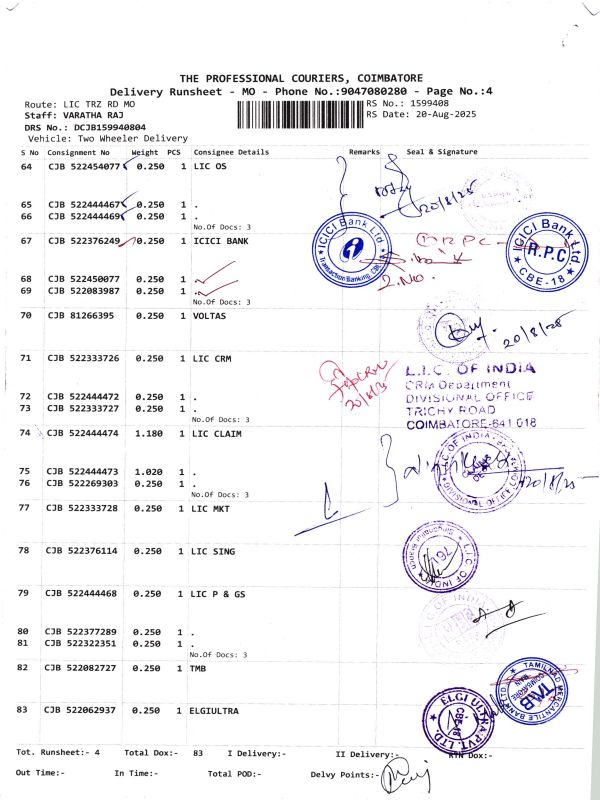 THE PROFESSIONAL COURIERS, COIMBATORE
Delivery Runsheet - MO - Phone No.:9047080280 - Page No.:4
Route: LIC TRZ RD MO
RS No.: 1599408
Staff: VARATHA RAJ
RS Date: 20-Aug-2025
DRS No.: DCJB159940804
Vehicle: Two Wheeler Delivery
S No Consignment No Weight PCS Consignee Details Remarks Seal & Signature
64 CJB 522454077 0.250 1 LIC OS
20/8/25
65 CJB 522444467 0.250 1 .
66 CJB 522444469 0.250 1 .
No.Of Docs: 3
67 CJB 522376249 0.250 1 ICICI BANK
ICICI Bank Ltd
Transaction Banking, CBE
R P C
ICICI Bank Ltd.
R.P.C
CBE-18
68 CJB 522450077 0.250 1 .
69 CJB 522083987 0.250 1 .
No.Of Docs: 3
70 CJB 81266395 0.250 1 VOLTAS
20/8/25
71 CJB 522333726 0.250 1 LIC CRM
L.I.C. OF INDIA
CRM Department
DIVISIONAL OFFICE
TRICHY ROAD
COIMBATORE-641 018
20/8/25
72 CJB 522444472 0.250 1 .
73 CJB 522333727 0.250 1 .
No.Of Docs: 3
74 CJB 522444474 1.180 1 LIC CLAIM
75 CJB 522444473 1.020 1 .
76 CJB 522269303 0.250 1 .
No.Of Docs: 3
20/8/25
77 CJB 522333728 0.250 1 LIC MKT
78 CJB 522376114 0.250 1 LIC SING
L.I.C. OF INDIA
79 CJB 522444468 0.250 1 LIC P & GS
80 CJB 522377289 0.250 1 .
81 CJB 522322351 0.250 1 .
No.Of Docs: 3
82 CJB 522082727 0.250 1 TMB
TAMILNAD MERCANTILE BANK LTD
TMB
COIMBATORE
83 CJB 522062937 0.250 1 ELGIULTRA
ELGI ULTRA PVT. LTD.
Tot. Runsheet:- 4 Total Dox:- 83 I Delivery:- II Delivery:- RTN Dox:-
Out Time:- In Time:- Total POD:- Delvy Points:-